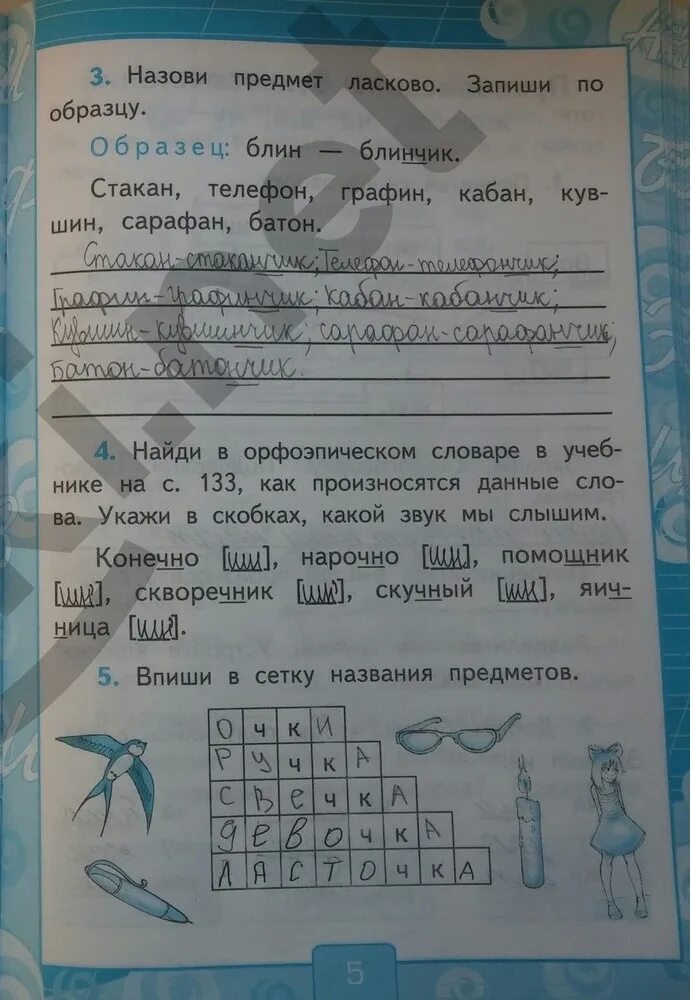 3. Назови предмет ласково. Запиши по
образцу.
Образец: блин — блинчик.
Стакан, телефон, графин, кабан, кув-
шин, сарафан, батон.
Стакан-стаканчик; Телефон-телефончик;
Графин-графинчик; Кабан-кабанчик;
Кувшин-кувшинчик; сарафан-сарафанчик;
Батон-батончик.
4. Найди в орфоэпическом словаре в учеб-
нике на с. 133, как произносятся данные сло-
ва. Укажи в скобках, какой звук мы слышим.
Конечно [шн], нарочно [шн], помощник
[шн'], скворечник [шн'], скучный [шн], яич-
ница [шн'].
5. Впиши в сетку названия предметов.
Очки
Ручка
Свечка
девочка
Ласточка
5